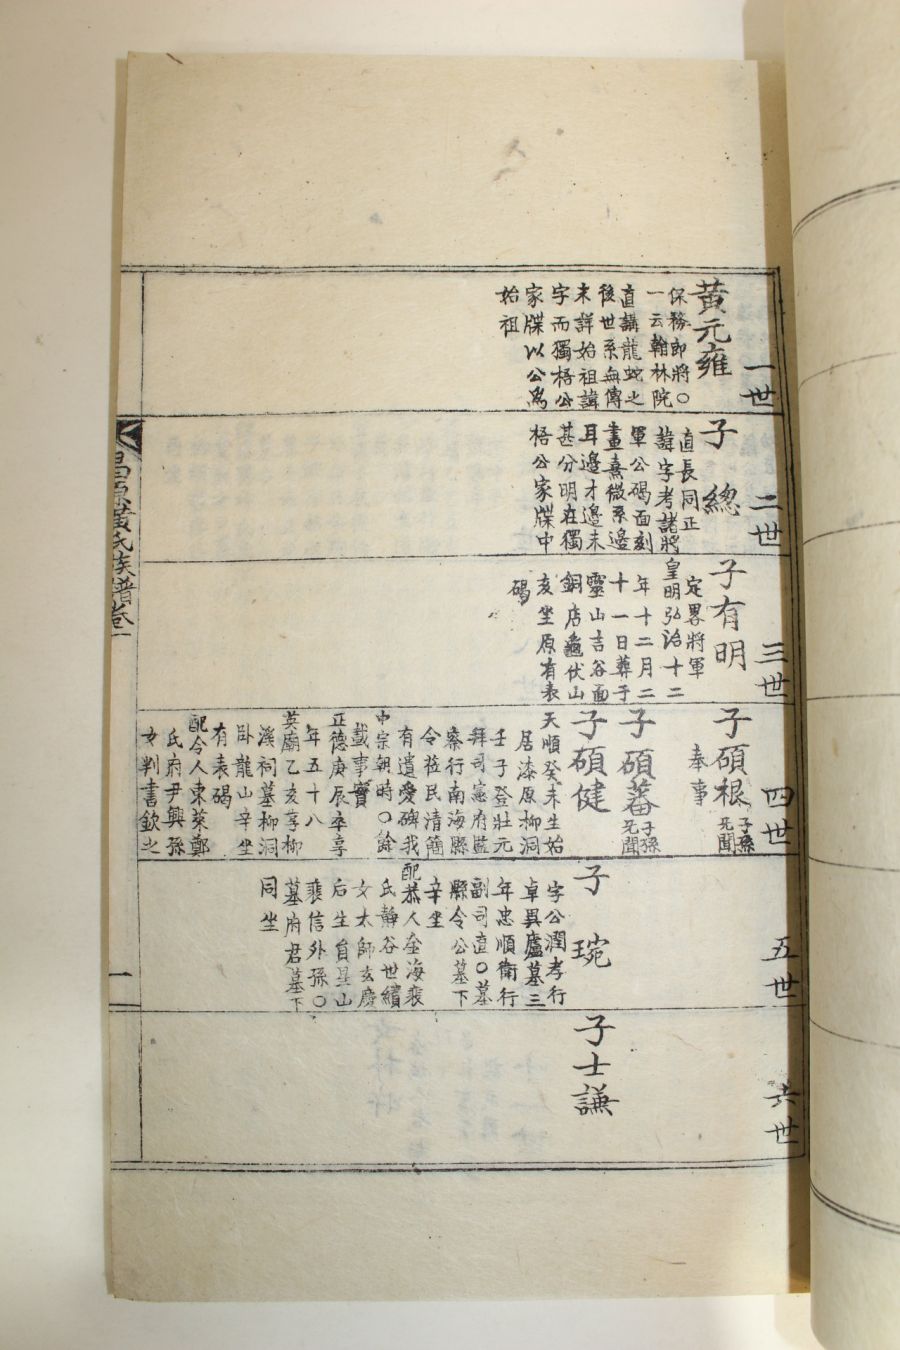 一世
黃元雍
保務郞將○
一云翰林院
直講龍蛇之
後世系無傳
未詳始祖諱
字而獨梧公
家牒以公爲
始祖
二世
子 總
直長同正
諱字考諸將
軍公碣面刻
畫熹微系邊
耳邊才邊未
甚分明在獨
梧公家牒中
三世
子有明
定畧將軍
皇明弘治十二
年十二月二
十一日葬于
靈山吉谷面
銅店龜伏山
亥坐原有表
碣
四世
子碩根 子孫
旡聞
奉事
子碩蕃 子孫
旡聞
子碩健
天順癸未生始
居漆原柳洞
壬子登壯元
拜司憲府監
察行南海縣
令莅民清簡
有遺愛碑我
中宗朝時○餘
載事實
正德庚辰卒享
年五十八
英廟乙亥享柳
溪祠墓柳洞
臥龍山辛坐
有表碣
配令人東萊鄭
氏府尹興孫
女判書欽之
五世
子 琬
字公潤孝行
卓異廬墓三
年忠順衛行
副司直○墓
縣令公墓下
辛坐
配恭人金海裵
氏靜谷世績
女太師玄慶
后生員星山
裵信外孫○
墓府君墓下
同坐
六世
子士謙
昌原黃氏族譜卷一
一